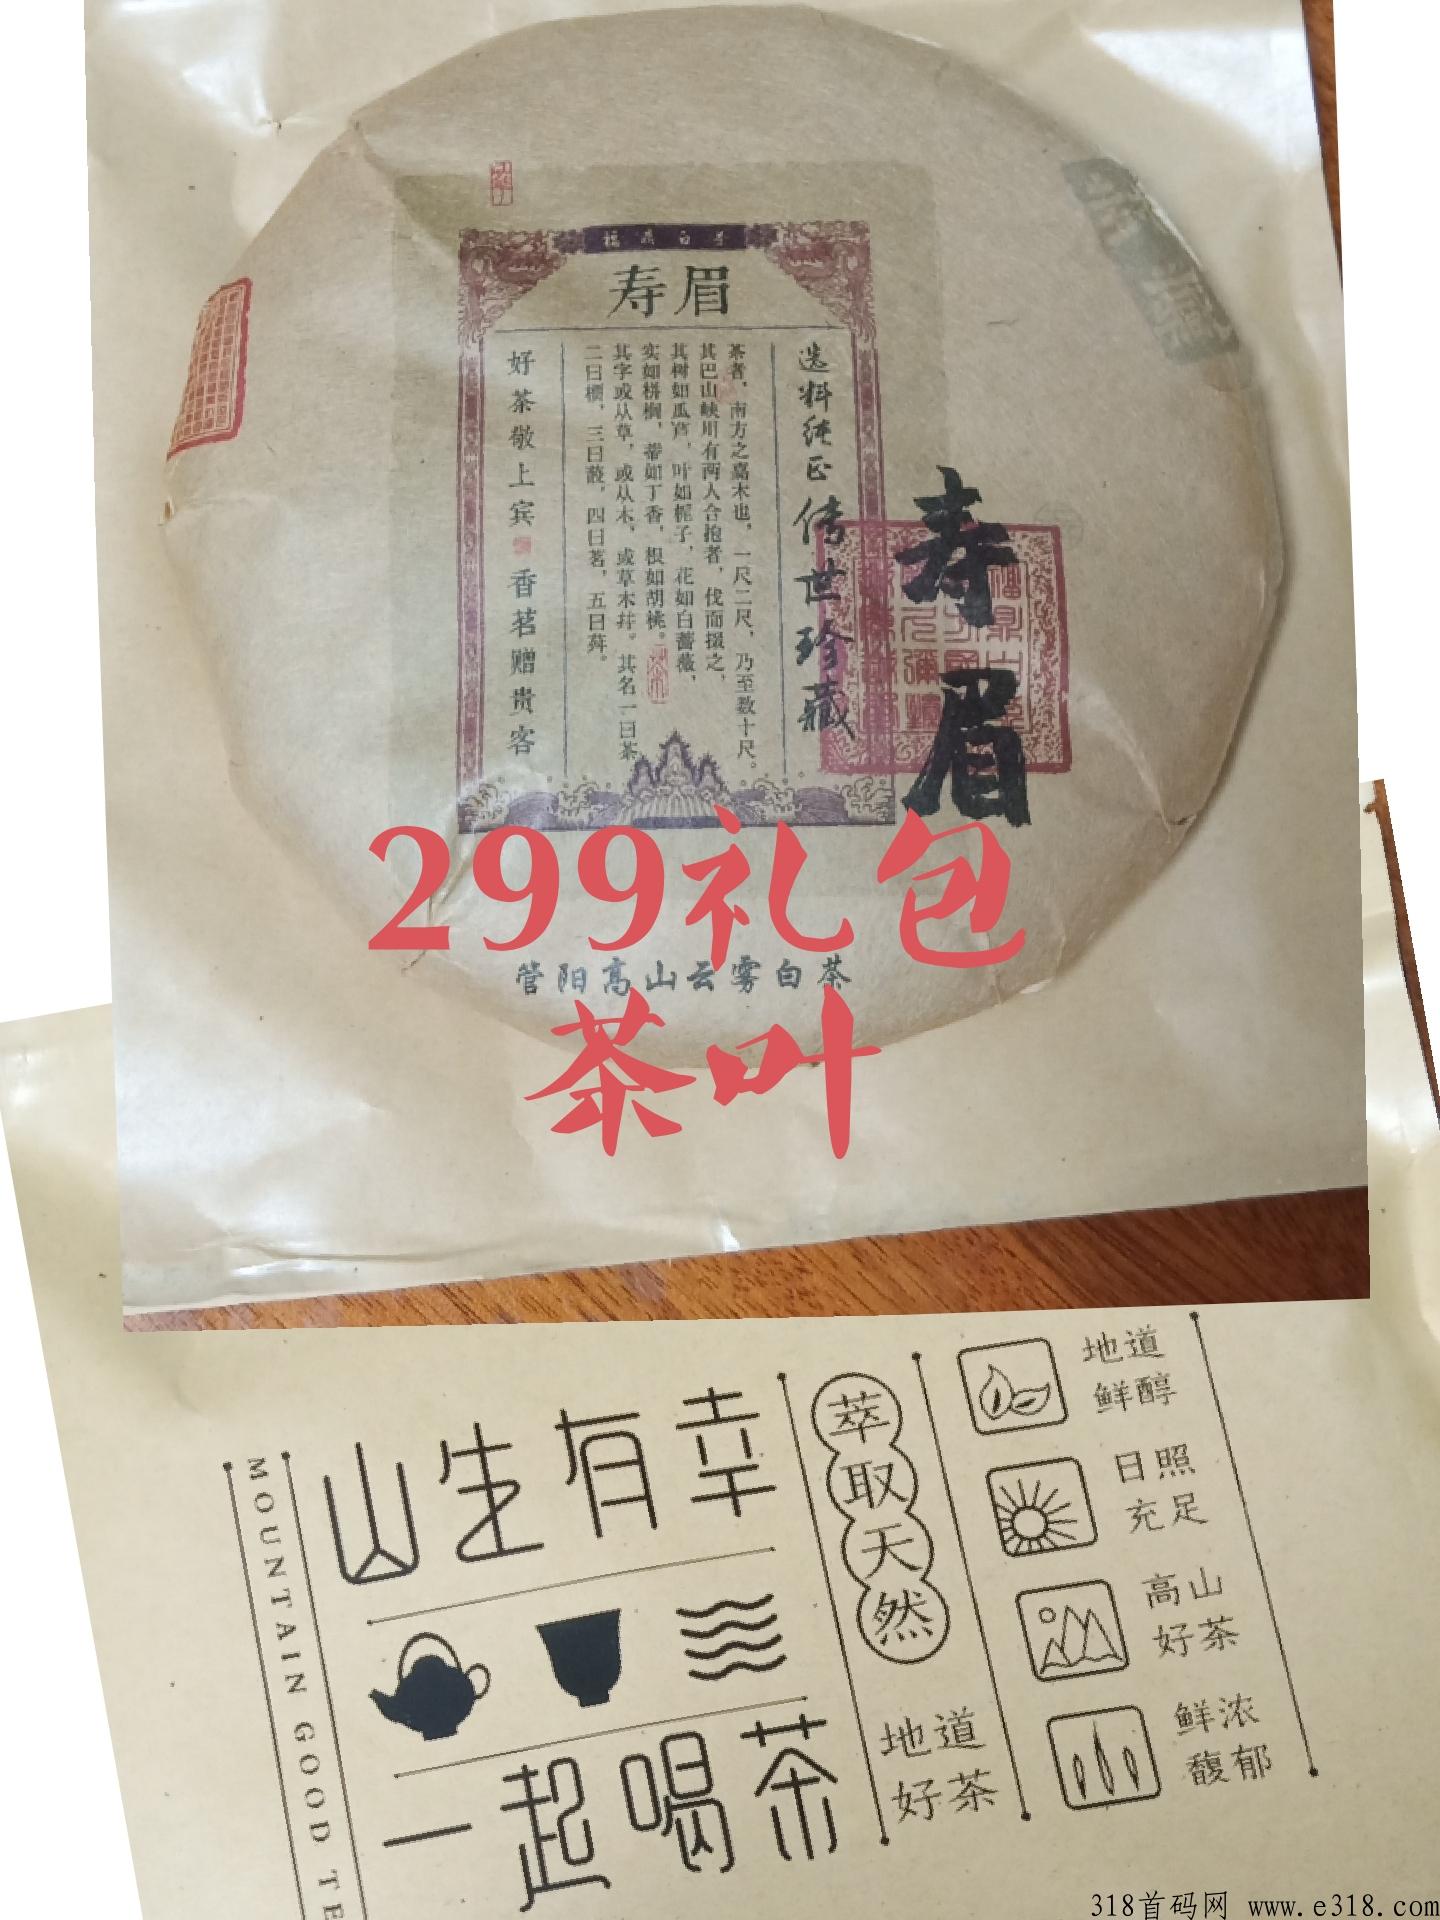 福鼎白茶
寿眉
选料纯正 传世珍藏
茶者，南方之嘉木也，一尺二尺，乃至数十尺。
其巴山峡川有两人合抱者，伐而掇之，
其树如瓜芦，叶如栀子，花如白蔷薇，
实如栟榈，蒂如丁香，根如胡桃。
其字或从草，或从木，或草木并。其名一曰茶
二曰槚，三曰蔎，四曰茗，五曰荈。
好茶敬上宾 香茗赠贵客
寿眉
299礼包
管阳高山云雾白茶
茶叶
山生有幸
一起喝茶
MOUNTAIN GOOD TE
萃取天然
地道
好茶
地道
鲜醇
日照
充足
高山
好茶
鲜浓
馥郁
318首码网 www.e318.com